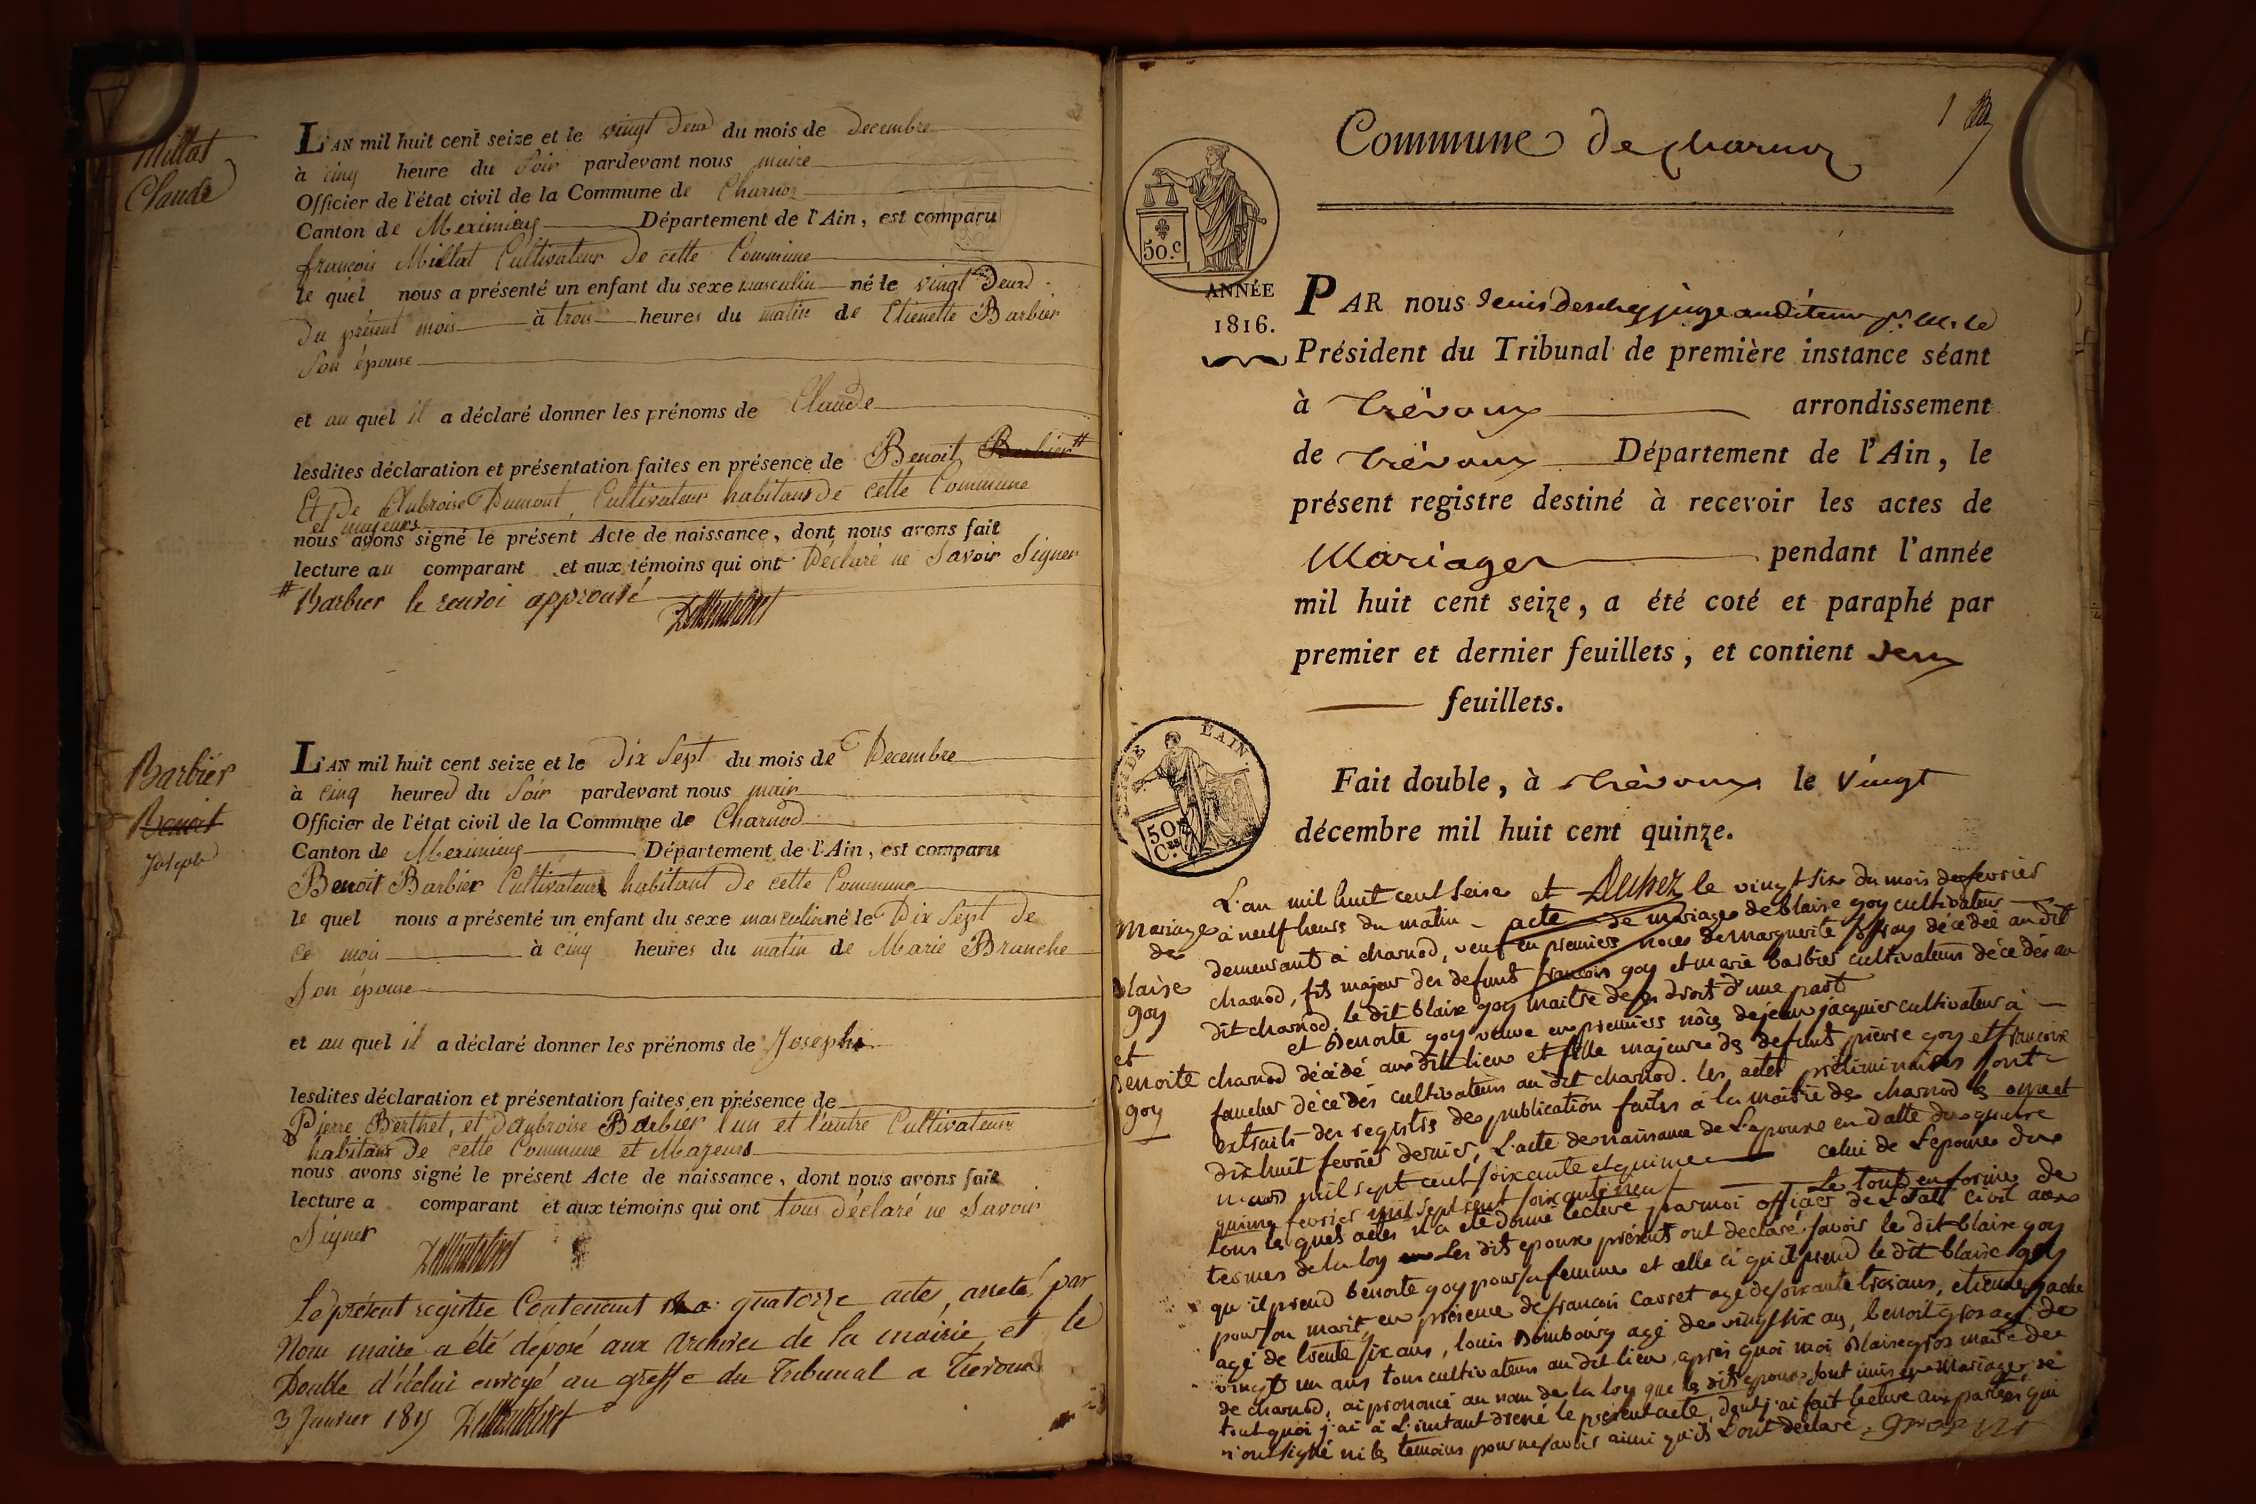 Millat
Claude
L'AN mil huit cent seize et le vingt deux du mois de Decembre
à cinq heure du Soir pardevant nous maire
Officier de l'état civil de la Commune de Charnoz
Canton de Meximieux Département de l'Ain, est comparu
françois Millat Cultivateur De cette Commune
le quel nous a présenté un enfant du sexe masculin né le vingt Deux
Du présent mois à trois heures du matin de Etienette Barbier
Son épouse
et au quel il a déclaré donner les prénoms de Claude
lesdites déclaration et présentation faites en présence de Benoit Barbier #
Et De Ambroise Dumont, Cultivateur habitans de cette Commune
et majeurs
nous avons signé le présent Acte de naissance, dont nous avons fait
lecture au comparant et aux témoins qui ont Déclaré ne Savoir Signer
# Barbier le renvoi approuvé
Barbier
Benoit
Joseph
L'AN mil huit cent seize et le Dix Sept du mois de Decembre
à cinq heures du Soir pardevant nous maire
Officier de l'état civil de la Commune de Charnod
Canton de Meximieux Département de l'Ain, est comparu
Benoit Barbier Cultivateur habitant De cette Commune
le quel nous a présenté un enfant du sexe masculin né le Dix Sept De
ce mois à cinq heures du matin de Marie Branche
Son épouse
et au quel il a déclaré donner les prénoms de Joseph
lesdites déclaration et présentation faites en présence de
Pierre Berthet, et D'ambroise Barbier l'un et l'autre Cultivateurs
habitans De cette Commune et Majeurs
nous avons signé le présent Acte de naissance, dont nous avons fait
lecture a comparant et aux témoins qui ont tous déclaré ne Savoir
Signer
Le présent registre Contenant quatorze actes, arreté par
Nous maire a été déposé aux Archives de la mairie et le
Double d'icelui envoyé au greffe du Tribunal a Trevoux
3 Janvier 181
1
Commune de charnoz
50.c
ANNÉE
1816.
PAR nous Denis juge auditeur pr. M. le
Président du Tribunal de première instance séant
à Trévoux arrondissement
de Trévoux Département de l'Ain, le
présent registre destiné à recevoir les actes de
Mariages pendant l'année
mil huit cent seize, a été coté et paraphé par
premier et dernier feuillets, et contient deux
feuillets.
DE L'AIN
50
Ces
Fait double, à Trévoux le Vingt
décembre mil huit cent quinze.
Mariage
de
Blaise
Goy
et
Benoite
goy
L'an mil huit cent seise et le vingt six du mois de fevrier
à neuf heurs du matin - acte de mariage de blaise goy cultivateur
demeurant à charnod, veuf en premiers noces de marguerite décédée au dit
charnod, fils majeur des defunt françois goy et marie barbier cultivateurs décedés au
dit charnod, le dit blaise goy maitre de ses droits d'une part
et Benoite goy veuve en premiers nôces de jean jacquier cultivateur à
charnod décédé au dit lieu et fille majeure des defunt pierre goy et francoise
faucher décedés cultivateurs au dit charnod. les actes préliminaires sont
extraits des registre de publication faites à la mairie de charnod les onze et
dix huit fevrier dernier, L'acte de naissance de L'epoux en datte du quatre
mars mil sept cent soixante et quinze celui de L'epouse du
quinze fevrier mil sept cent soixante neuf Le tout en forme de
tous les quels actes il a été donné lecture par moi officier de L'etat civil aux
termes de la loy Les dits epoux présents ont declaré savoir le dit blaise goy
qu'il prend benoite goy pour sa femme et celle ci qu'il prend le dit blaise goy
pour son marit, en présence de francois Carret agé de soixante trois ans, etienne
agé de trente six ans, louis Bombourg agé de vingt six ans, benoit gros agé de
vingt un ans tous cultivateurs au dit lieu, après quoi moi Blaise gros maire de
de charnod, ai prononcé au nom de la loy que les dits epoux sont unis en mariage, de
tout quoi j'ai à L'instant dressé le présent acte, dont j'ai fait lecture aux parties qui
n'ont signé ni les temoins pour ne savoir ainsi qu'ils L'ont déclaré.